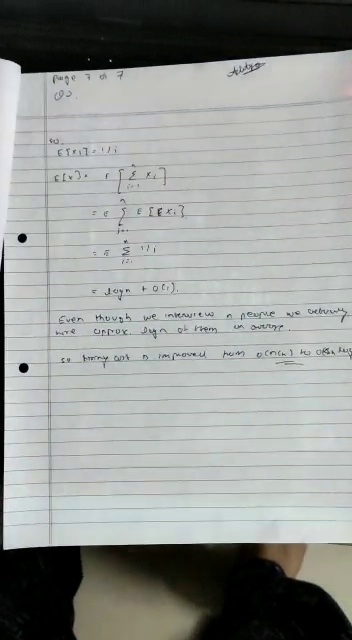 Page 7 of 7
Q2.
so,
E[xi] = 1/i
E[x] = E [ n Σ i=1 xi ]
= E n Σ i=1 E[E xi]
= E n Σ i=1 1/i
= logn + O(1).
Even though we interview n people we actually
hire approx. logn of them on average.
so hiring cost is improved from O(nCh) to